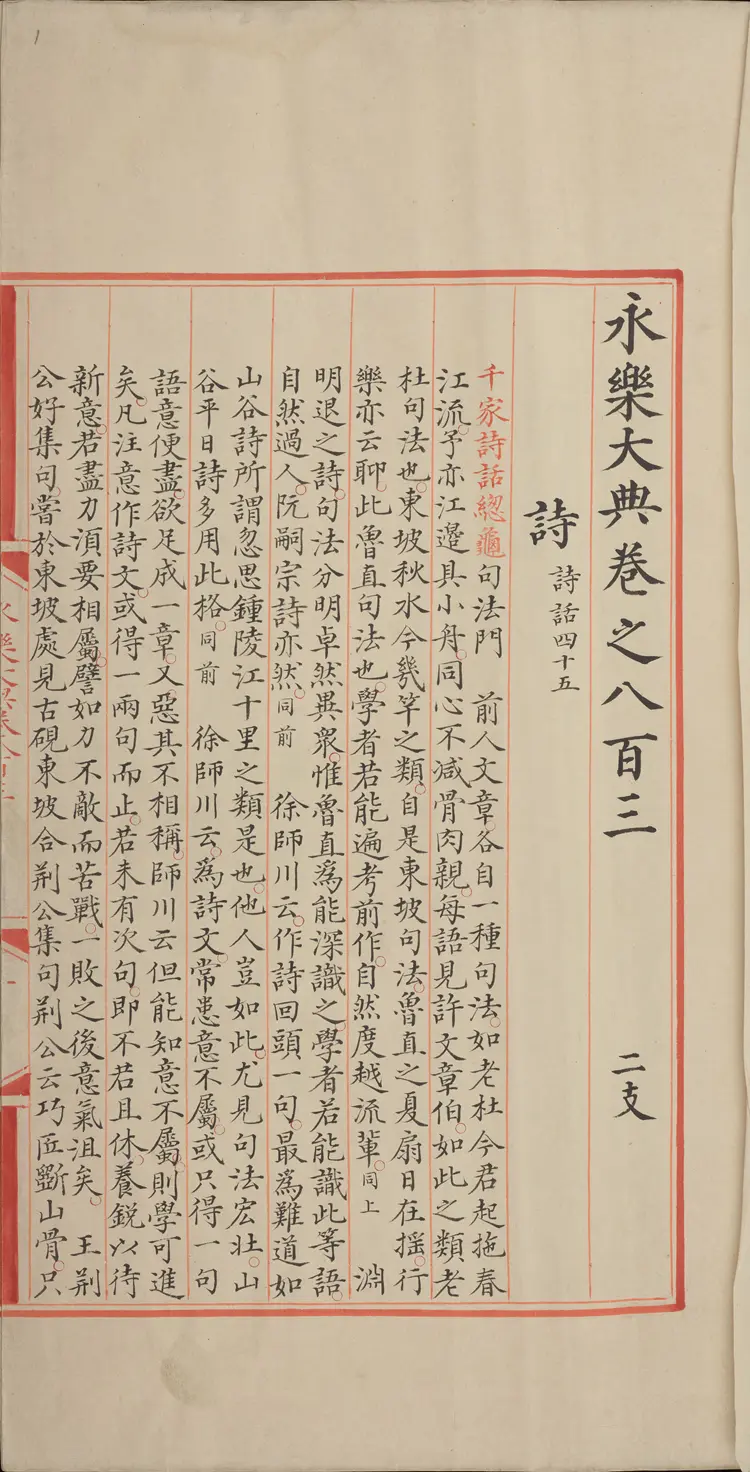 永樂大典卷之八百三　二支
詩　詩話四十五
千家詩話總龜句法門　前人文章各自一種句法如老杜今君起拖春
江流予亦江邊具小舟同心不減骨肉親每語見許文章伯如此之類老
杜句法也東坡秋水今幾竿之類自是東坡句法魯直之夏扇日在搖行
樂亦云聊此魯直句法也學者若能遍考前作自然度越流輩同上　淵
明退之詩句法分明卓然異衆惟魯直爲能深識之學者若能識此等語
自然過人阮嗣宗詩亦然同前　徐師川云作詩回頭一句最爲難道如
山谷詩所謂忽思鍾陵江十里之類是也他人豈如此尤見句法宏壯山
谷平日詩多用此格同前　徐師川云爲詩文常患意不屬或只得一句
語意便盡欲足成一章又惡其不相稱師川云但能知意不屬則學可進
矣凡注意作詩文或得一兩句而止若未有次句即不若且休養銳以待
新意若盡力須要相屬譬如力不敵而苦戰一敗之後意氣沮矣　王荆
公好集句嘗於東坡處見古硯東坡合荆公集句荆公云巧匠斵山骨只
1